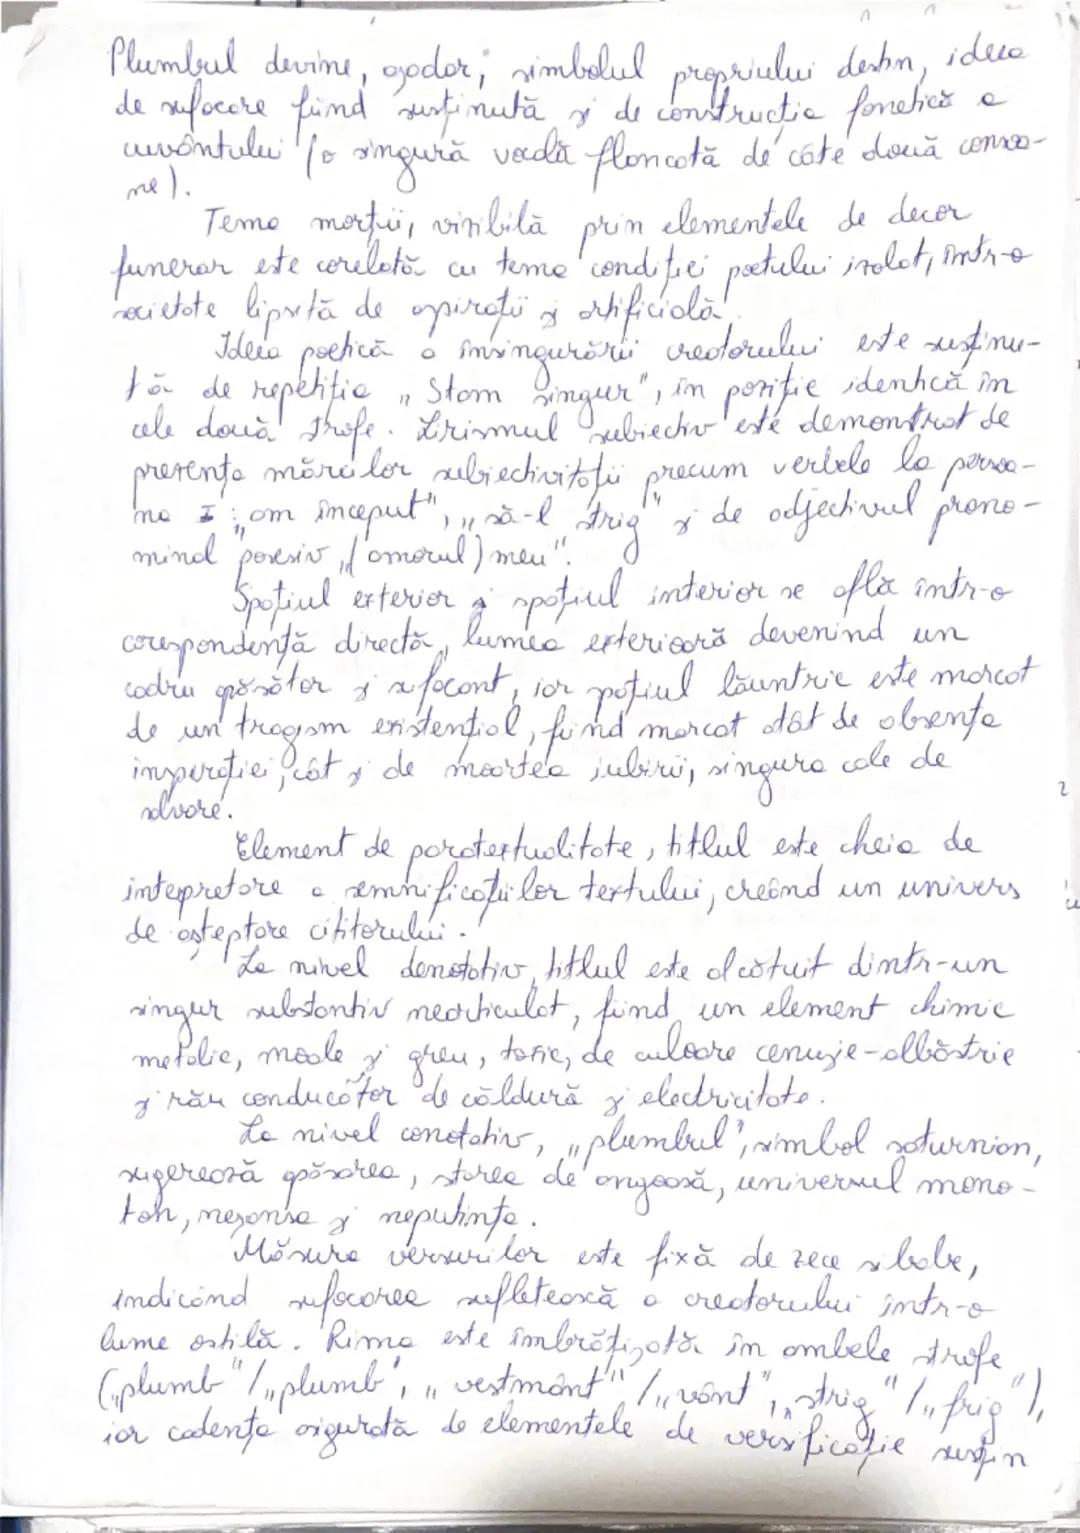 Plumbul devine, așadar, simbolul propriului destin, ideea
de sufocare fiind susținută și de construcția fonetică a
cuvântului (o singură vocală flancată de câte două consoa-
ne).
Tema morții, vizibilă prin elementele de decor
funerar este corelată cu tema condiției poetului izolat, într-o
societate lipsită de aspirații și artificială.
Ideea poetică a însingurării creatorului este susținu-
tă de repetiția „Stam singur", în poziție identică în
cele două strofe. Lirismul subiectiv este demonstrat de
prezența mărcilor subiectivității precum verbele la persoa-
na I: „am început", „să-l strig" și de adjectivul prono-
minal posesiv „(amorul) meu".
Spațiul exterior și spațiul interior se află într-o
corespondență directă, lumea exterioară devenind un
cadru apăsător și sufocant, iar pațiul lăuntric este marcat
de un tragism existențial, fiind marcat atât de absența
inspirației, cât și de moartea iubirii, singura cale de
salvare.
Element de paratextualitate, titlul este cheia de
intepretare a semnificațiilor textului, creând un univers
de așteptare cititorului.
La nivel denotativ, titlul este alcătuit dintr-un
singur substantiv nearticulat, fiind un element chimic
metalic, moale și greu, toxic, de culoare cenușie-albăstrie
și rău conducător de căldură și electricitate.
La nivel conotativ, „plumbul", simbol saturnian,
sugerează apăsarea, starea de angoasă, universul mono-
ton, neșansa și neputința.
Măsura versurilor este fixă de zece silabe,
indicând sufocarea sufletească a creatorului într-o
lume ostilă. Rima este îmbrățișată în ambele strofe
(„plumb"/„plumb", „vestmânt"/„vânt", „strig"/„frig"),
iar cadența asigurată de elementele de versificație susțin